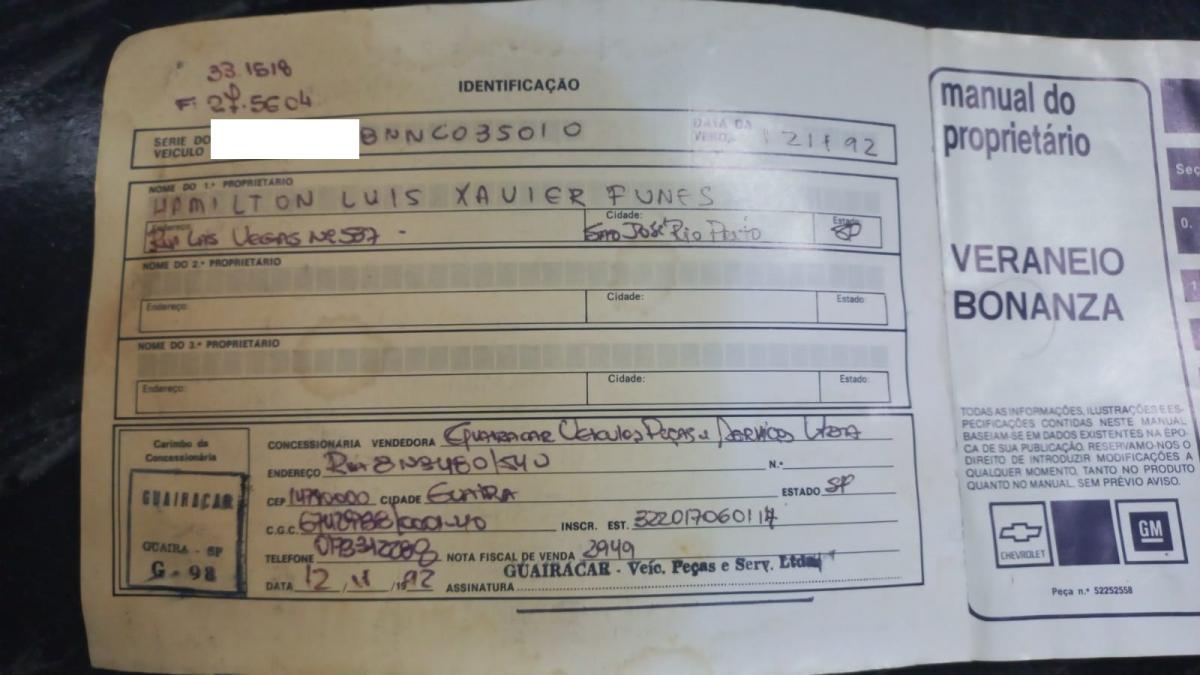 33.1518
F: 27.5604
IDENTIFICAÇÃO
SÉRIE DO VEÍCULO BNNC035010 DATA DA VENDA 21 92
NOME DO 1.º PROPRIETÁRIO
HAMILTON LUIS XAVIER FUNES
Endereço: Rua LAS VEGAS Nº 587 - Cidade: São José Rio Preto Estado: SP
NOME DO 2.º PROPRIETÁRIO
Endereço: Cidade: Estado:
NOME DO 3.º PROPRIETÁRIO
Endereço: Cidade: Estado:
Carimbo da Concessionária
GUAIRACAR
GUAIRA - SP
G - 98
CONCESSIONÁRIA VENDEDORA Guairacar Veiculos Peças e Serviços Ltda
ENDEREÇO Rua 8 Nº 480/540 N.º
CEP 14790000 CIDADE GUAIRA ESTADO SP
C.G.C. INSCR. EST.
TELEFONE NOTA FISCAL DE VENDA 2949
GUAIRACAR - Veíc. Peças e Serv. Ltda
DATA 12 / 11 / 1992 ASSINATURA
manual do
proprietário
VERANEIO
BONANZA
TODAS AS INFORMAÇÕES, ILUSTRAÇÕES E ES-
PECIFICAÇÕES CONTIDAS NESTE MANUAL
BASEIAM-SE EM DADOS EXISTENTES NA ÉPO-
CA DE SUA PUBLICAÇÃO. RESERVAMO-NOS O
DIREITO DE INTRODUZIR MODIFICAÇÕES A
QUALQUER MOMENTO, TANTO NO PRODUTO
QUANTO NO MANUAL, SEM PRÉVIO AVISO.
CHEVROLET
GM
Peça n.º 52252558
Seç
0.
1